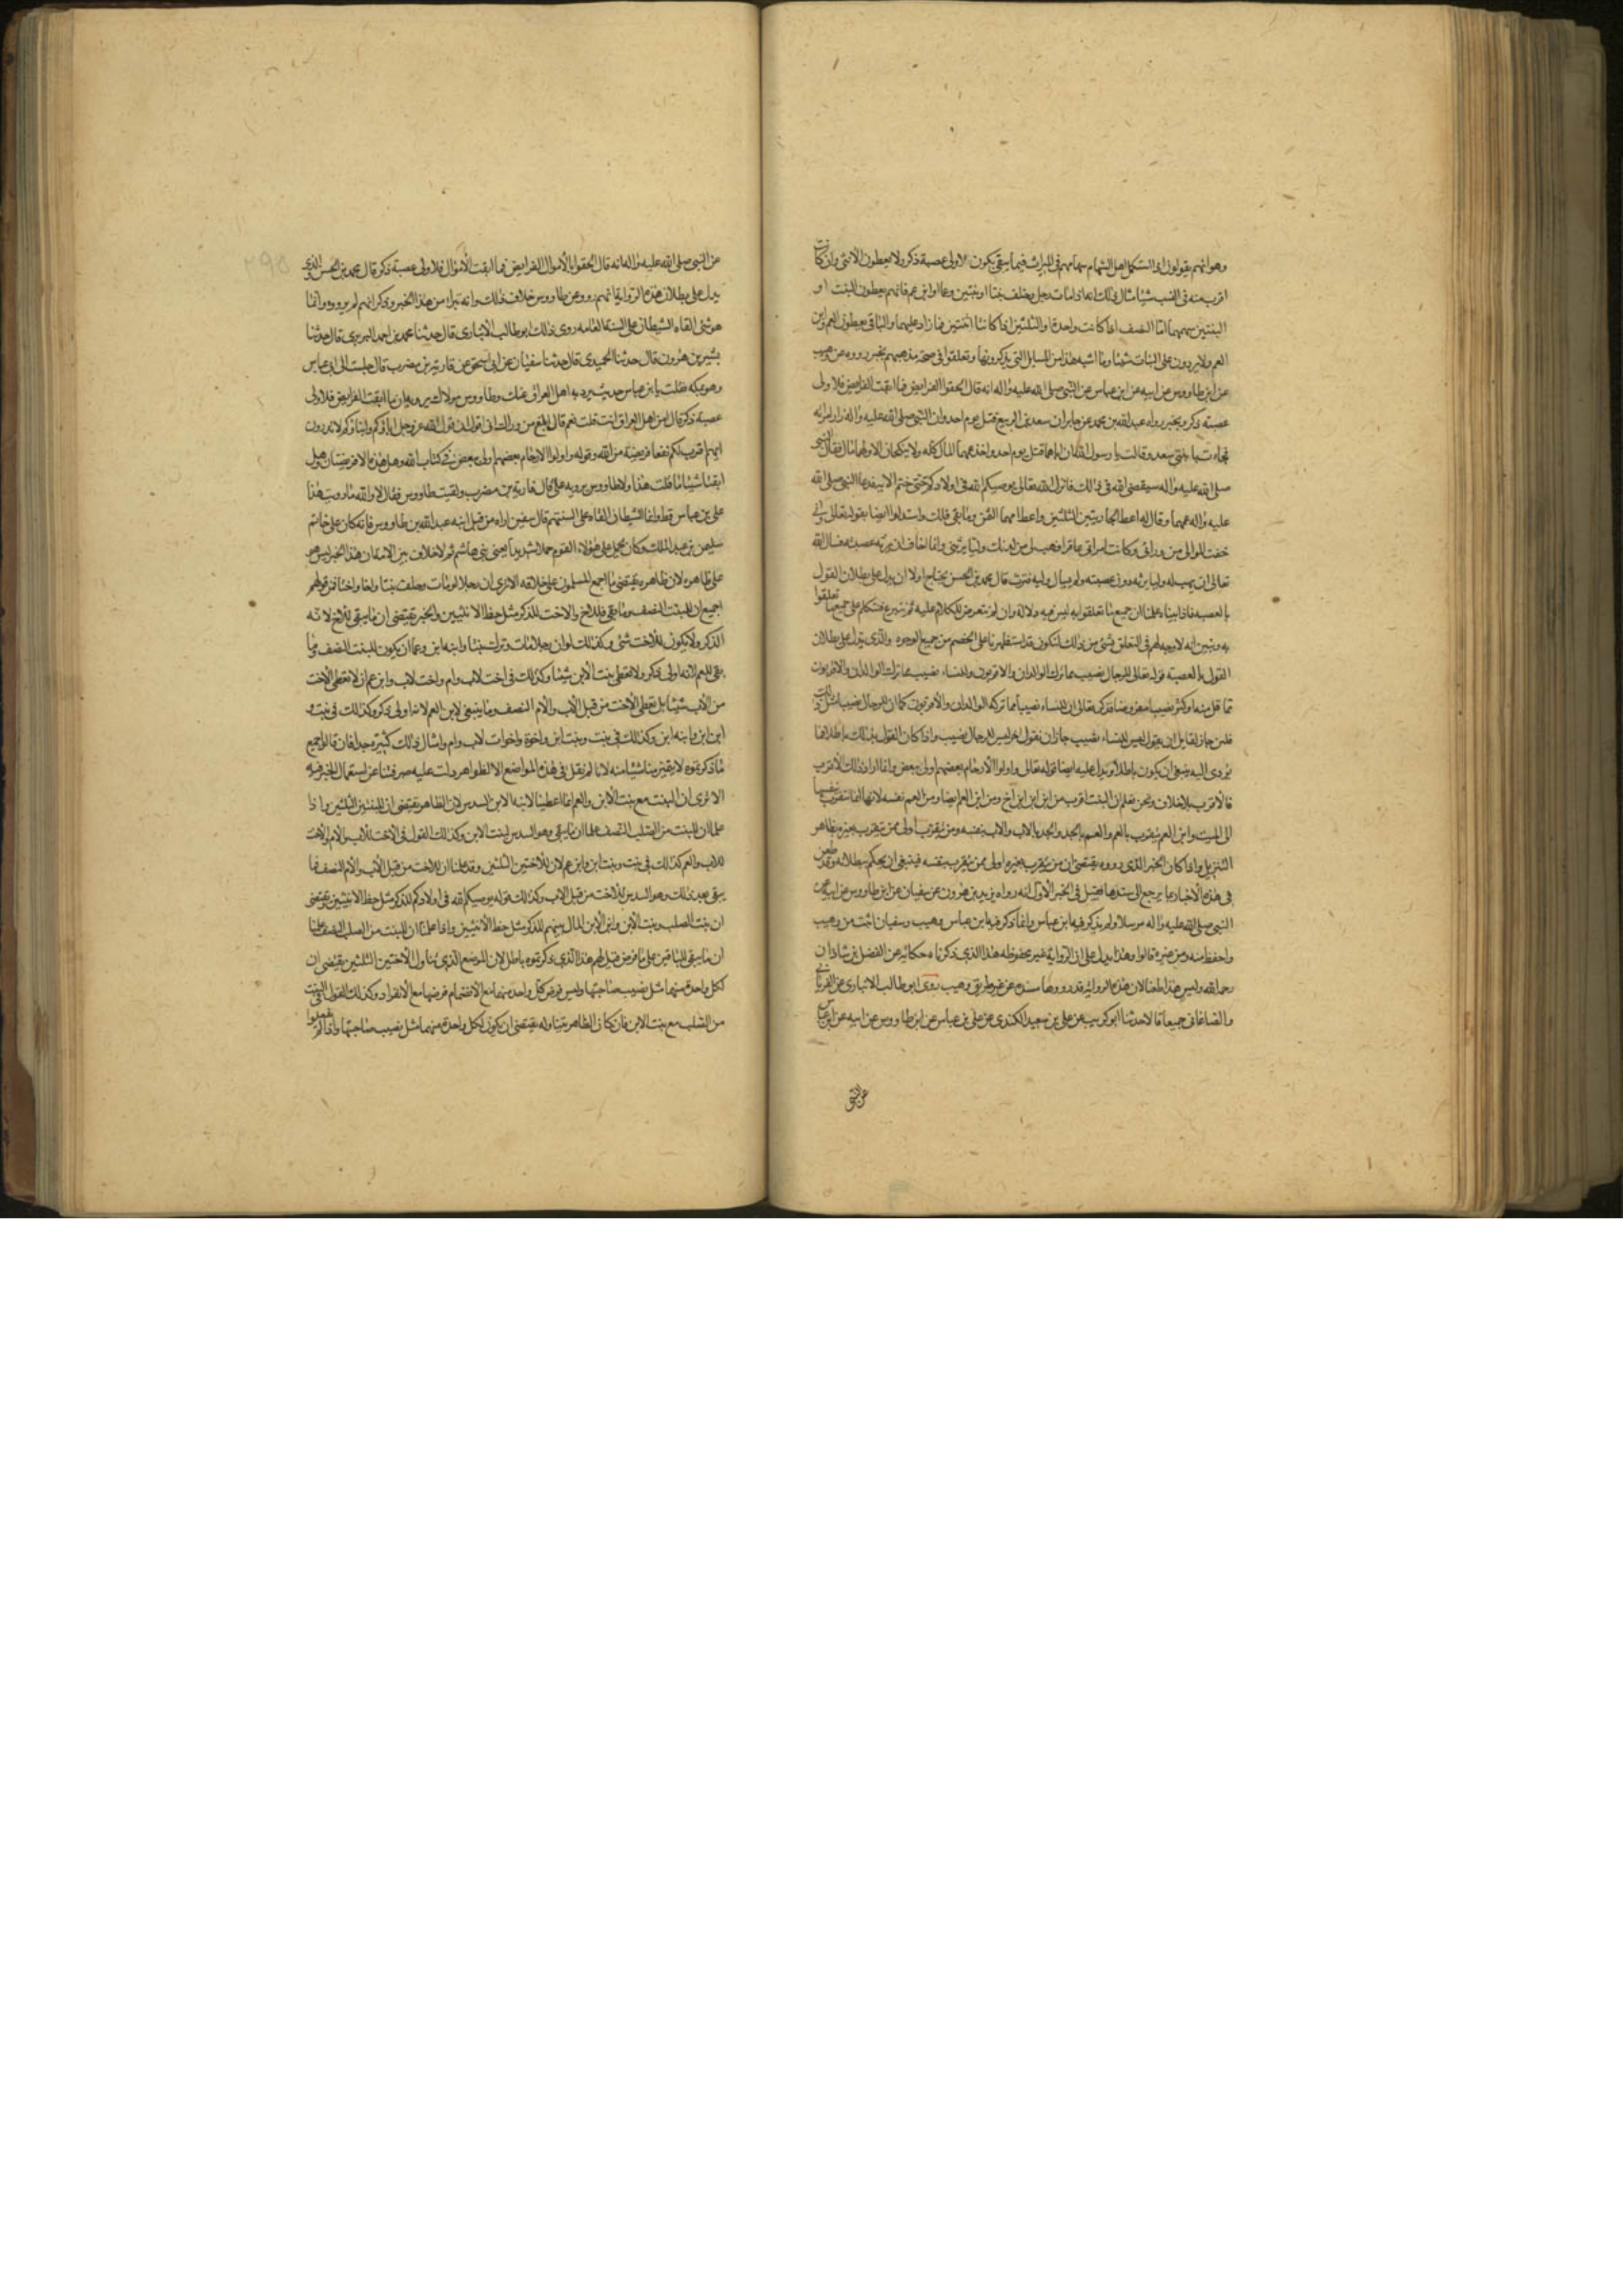 وهو انهم يقولون اذا استكمل اهل السهام سهامهم فى الميراث فيما بقى يكون لاولى عصبة ذكر ولا يعطون الانثى وان كانت
اقرب منه فى النسب شيئا مثال ذلك انه اذا مات رجل وخلف بنتا او بنتين وعما او ابن عم فانهم يعطون البنت او
البنتين سهمهما اما النصف اذا كانت واحدة او الثلثين اذا كانتا اثنتين فما زاد عليهما والباقى يعطون العم وابن
العم ولا يردون على البنات شيئا وما اشبه هذا من المسايل التى يذكرونها وتعلقوا فى صحة مذهبهم بخبر رووه عن وهيب
عن ابن طاووس عن ابيه عن ابن عباس عن النبى صلى الله عليه واله انه قال الحقوا الفرايض فما ابقت الفرايض فلاولى
عصبة ذكر وبخبر رواه عبد الله بن محمد عن جابر ان سعد بن الربيع قتل يوم احد وان النبى صلى الله عليه واله زار امراته
فجاءت بابنتى سعد وقالت يا رسول الله ان اباهما قتل يوم احد واخذ عمهما المال كله ولا ينكحان الا ولهما مال فقال النبى
صلى الله عليه واله سيقضى الله فى ذلك فانزل الله تعالى يوصيكم الله فى اولادكم حتى ختم الاية فدعا النبى صلى الله
عليه واله عمهما وقال له اعط الجاريتين الثلثين واعط امهما الثمن وما بقى فلك واستدلوا ايضا بقوله تعالى وانى
خفت الموالى من ورائى وكانت امراتى عاقرا فهب لى من لدنك وليا يرثنى وانما خاف ان يرثه عصبته فسال الله
تعالى ان يهب له وليا يرثه دون عصبته ولم يسال ولية فترث قال محمد بن الحسن يحتاج اولا ان يدل على بطلان القول
بالعصبة فاذا بيناه علمنا ان جميع ما تعلقوا به ليس فيه دلالة وان لم نتعرض للكلام عليه ثم نشرع فنتكلم على جميع ما تعلقوا
به ونبين انه لا وجه لهم فى التعلق بشئ من ذلك لنكون قد استظهرنا على الخصم من جميع الوجوه والذى يدل على بطلان
القول بالعصبة قوله تعالى للرجال نصيب مما ترك الوالدان والاقربون وللنساء نصيب مما ترك الوالدان والاقربون
مما قل منه او كثر نصيبا مفروضا فذكر تعالى ان للنساء نصيبا مما تركه الوالدان والاقربون كما ان للرجال نصيبا مثل ذلك
فلئن جاز لقايل ان يقول ليس للنساء نصيب جاز ان نقول اخر ليس للرجال نصيب واذا كان القول بذلك باطلا فما
يؤدى اليه ينبغى ان يكون باطلا ويدل عليه ايضا قوله تعالى واولوا الارحام بعضهم اولى ببعض وانما اراد ذلك الاقرب
فالاقرب بلا خلاف ونحن نعلم ان البنت اقرب من ابن ابن ابن اخ ومن ابن العم ايضا ومن العم نفسه لانها انما تتقرب بنفسها
الى الميت وابن العم يتقرب بالعم والعم بالجد والجد بالاب والاب بنفسه ومن يتقرب اولى ممن يتقرب بغيره بظاهر
التنزيل واذا كان الخبر الذى رووه يقتضى ان من يتقرب بغيره اولى ممن يتقرب بنفسه فينبغى ان يحكم ببطلانه وقد طعن
فى هذه الاخبار بما يرجع الى سندها فقيل فى الخبر الاول انه رواه يزيد بن هرون عن سفيان عن ابن طاووس عن ابيه عن
النبى صلى الله عليه واله مرسلا ولم يذكر فيه ابن عباس وانما ذكر فيه ابن عباس وهيب وسفيان اثبت من وهيب
واحفظ منه ومن غيره قالوا وهذا يدل على ان الرواية غير محفوظه هذا الذى ذكرناه حكاية عن الفضل بن شاذان
رحمه الله وليس هذا طعنا لان هذه الرواية قد رووها مسندة عن غير طريق وهيب روى ابو طالب الانبارى عن الفريابى
والصاغانى جميعا قالا حدثنا ابو كريب عن على بن سعيد الكندى عن على بن عباس عن ابن طاووس عن ابيه عن ابن عباس
عن النبى
عن النبى صلى الله عليه واله انه قال الحقوا بالاموال الفرايض فما ابقت الاموال فلاولى عصبة ذكر قال محمد بن الحسن والذى
يدل على بطلان هذه الرواية انهم رووا عن طاووس خلاف ذلك وانه تبرا من هذا الخبر وذكر انه لم يروه وانما
هو شئ القاه الشيطان على السنة العامه روى ذلك ابو طالب الانبارى قال حدثنا محمد بن احمد البربرى قال حدثنا
بشير بن هرون قال حدثنا الحميدى قال حدثنا سفيان عن ابى اسحق عن قارية بن مضرب قال جلست الى ابن عباس
وهو بمكه فقلت يا ابن عباس حديث يرويه اهل العراق عنك وطاووس مولاك يرويه ان ما ابقت الفرايض فلاولى
عصبة ذكر قال امن اهل العراق انت قلت نعم قال ابلغ من وراك انى اقول ان قول الله عز وجل اباؤكم وابناؤكم لا تدرون
ايهم اقرب لكم نفعا فريضة من الله وقوله واولوا الارحام بعضهم اولى ببعض فى كتاب الله وهل هذه الا فريضتان وهل
ابقتا شيئا ما قلت هذا ولا طاووس يرويه على قال قارية بن مضرب ولقيت طاووس فقال لا والله ما رويت هذا
على بن عباس قط وانما الشيطان القاه على السنتهم قال سفين اراه من قبل ابنه عبد الله بن طاووس فانه كان على خاتم
سليمن بن عبد الملك وكان يحمل على هؤلاء القوم حملا شديدا يعنى بنى هاشم ثم لا خلاف بين الامة ان هذا الخبر ليس هو
على ظاهره لان ظاهره يقتضى ما اجمع المسلمون على خلافه الا ترى ان رجلا لو مات وخلف بنتا واخا واختا فمن قولهم
اجمع ان للبنت النصف وما بقى فللاخ والاخت للذكر مثل حظ الانثيين والخبر يقتضى ان ما يبقى للاخ لانه
الذكر ولا يكون للاخت شئ وكذلك لو ان رجلا مات وترك بنتا وابنة ابن وعما ان يكون للبنت النصف وما
بقى للعم لانه اولى ذكر ولا تعطى بنت الابن شيئا وكذلك فى اخت لاب وام واخت لاب وابن عم ان لا تعطى الاخت
من الاب شيئا بل تعطى الاخت من قبل الاب والام النصف وما يبقى لابن العم لانه اولى ذكر وكذلك فى بنت و
ابن ابن وابنة ابن وكذلك فى بنت وبنت ابن واخوة واخوات لاب وام وامثال ذلك كثيرة جدا فان قالوا جميع
ما ذكرتموه لا يلزمنا شيئا منه لانا لم نقل فى هذه المواضع الا لظواهر دلت عليه صرفتنا عن استعمال الخبر فيه
الا ترى ان البنت مع بنت الابن والعم انما اعطينا لابنة الابن السدس لان الظاهر يقتضى ان للبنتين الثلثين واذا
علمنا ان للبنت من الصلب النصف علمنا ان ما يبقى وهو السدس لبنت الابن وكذلك القول فى الاخت للاب والام والاخت
للاب والعم كذلك فى بنت وبنت ابن وابن عم لان للاختين الثلثين وقد علمنا ان للاخت من قبل الاب والام النصف فما
يبقى بعد ذلك وهو السدس للاخت من قبل الاب وكذلك قوله يوصيكم الله فى اولادكم للذكر مثل حظ الانثيين يقتضى
ان بنت الصلب وبنت الابن وابن الابن المال بينهم للذكر مثل حظ الانثيين واذا علمنا ان للبنت من الصلب النصف علمنا
ان ما يبقى للباقين على ما فرض قيل لهم هذا الذى ذكرتموه باطل لان الموضع الذى يتناول الاختين الثلثين يقتضى ان
لكل واحدة منهما مثل نصيب صاحبتها وليس فرض كل واحدة منهما مع الانضمام فرضها مع الانفراد وكذلك القول فى البنت
من الصلب مع بنت الابن فان كان الظاهر يتناوله يقتضى ان يكون لكل واحدة منهما مثل نصيب صاحبتها واذا لم يفعلوا